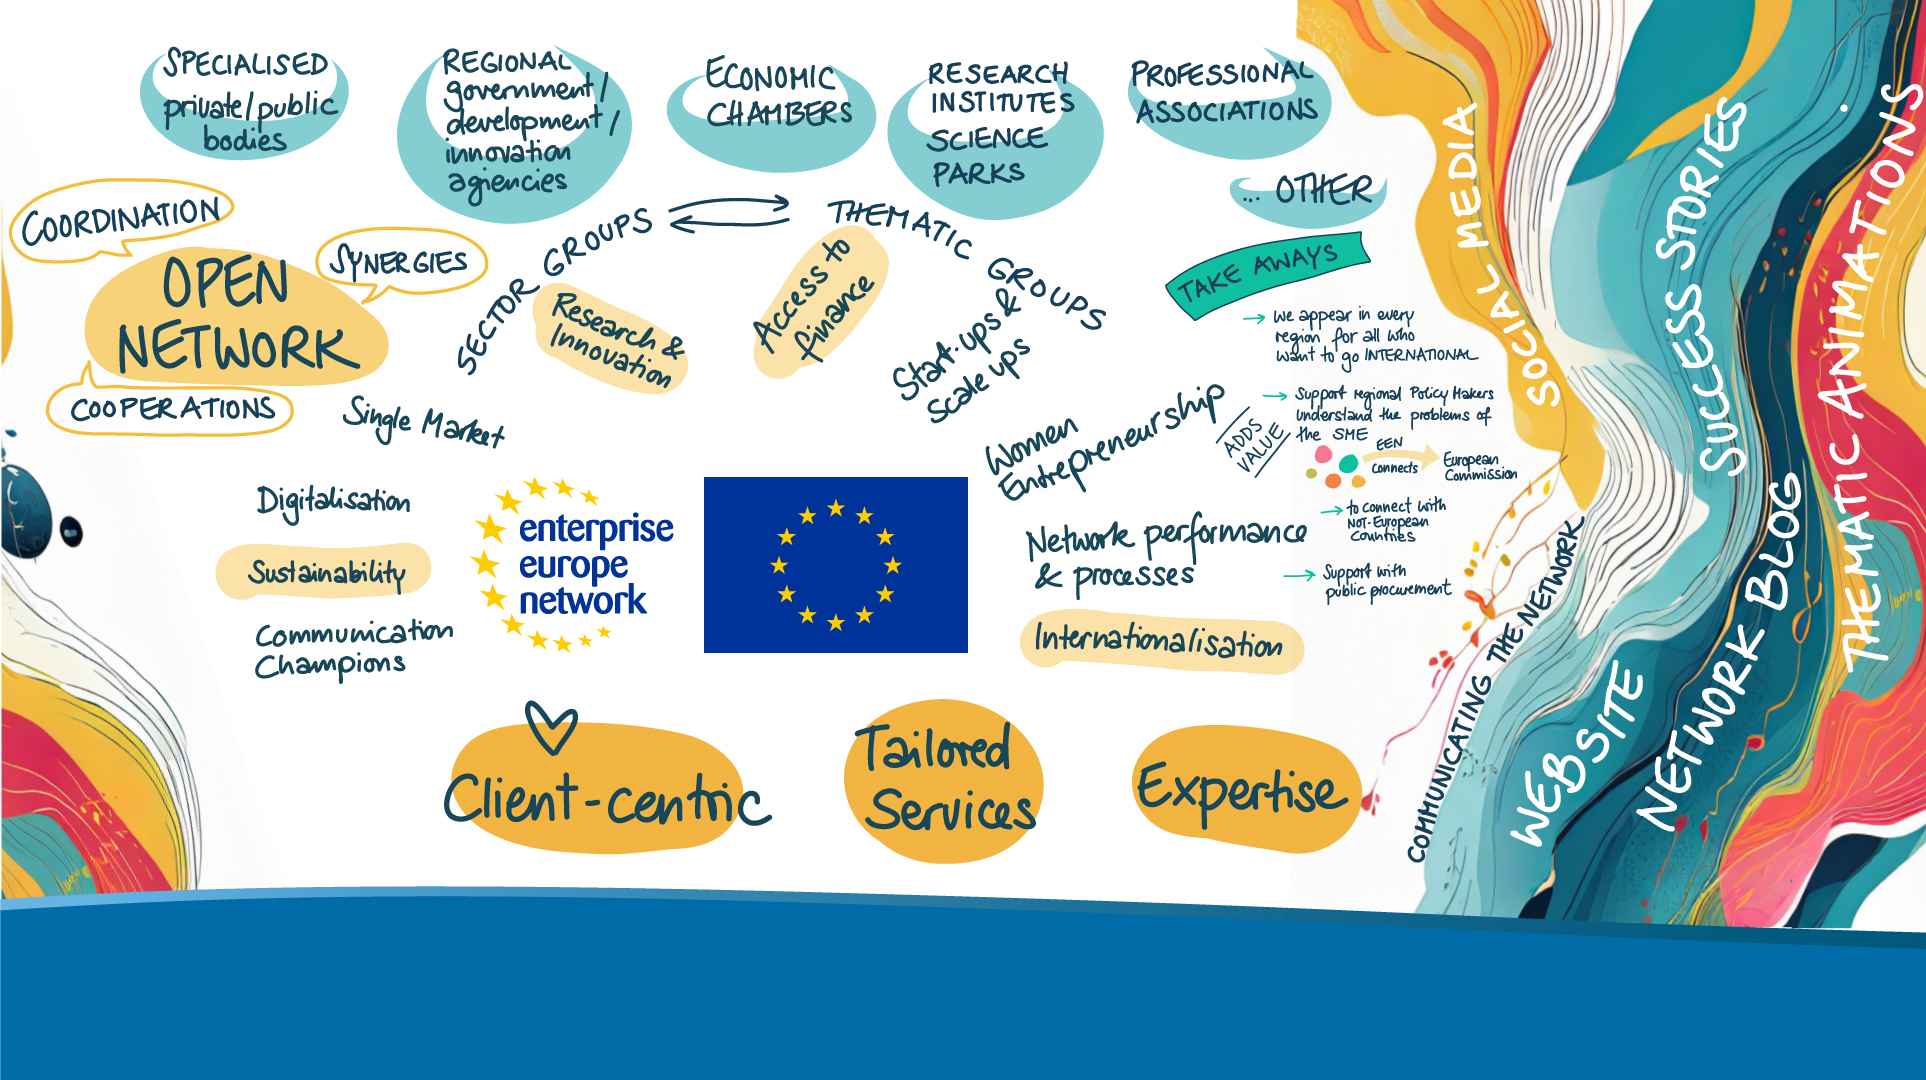 SPECIALISED
private/public
bodies
REGIONAL
government/
development/
innovation
agiencies
ECONOMIC
CHAMBERS
RESEARCH
INSTITUTES
SCIENCE
PARKS
PROFESSIONAL
ASSOCIATIONS
... OTHER
COORDINATION
OPEN
NETWORK
SYNERGIES
COOPERATIONS
SECTOR GROUPS
THEMATIC GROUPS
Research &
Innovation
Access to
finance
Start-ups &
Scale ups
Single Market
Women
Entrepreneurship
Digitalisation
Sustainability
Communication
Champions
enterprise
europe
network
Network performance
& processes
Internationalisation
TAKE AWAYS
we appear in every
region for all who
want to go INTERNATIONAL
ADDS
VALUE
Support regional Policy Makers
understand the problems of
the SME
EEN
connects
European
Commission
to connect with
Not-European
Countries
Support with
public procurement
Client-centric
Tailored
Services
Expertise
COMMUNICATING THE NETWORK
SOCIAL MEDIA
WEBSITE
SUCCESS STORIES
NETWORK BLOG
THEMATIC ANIMATIONS